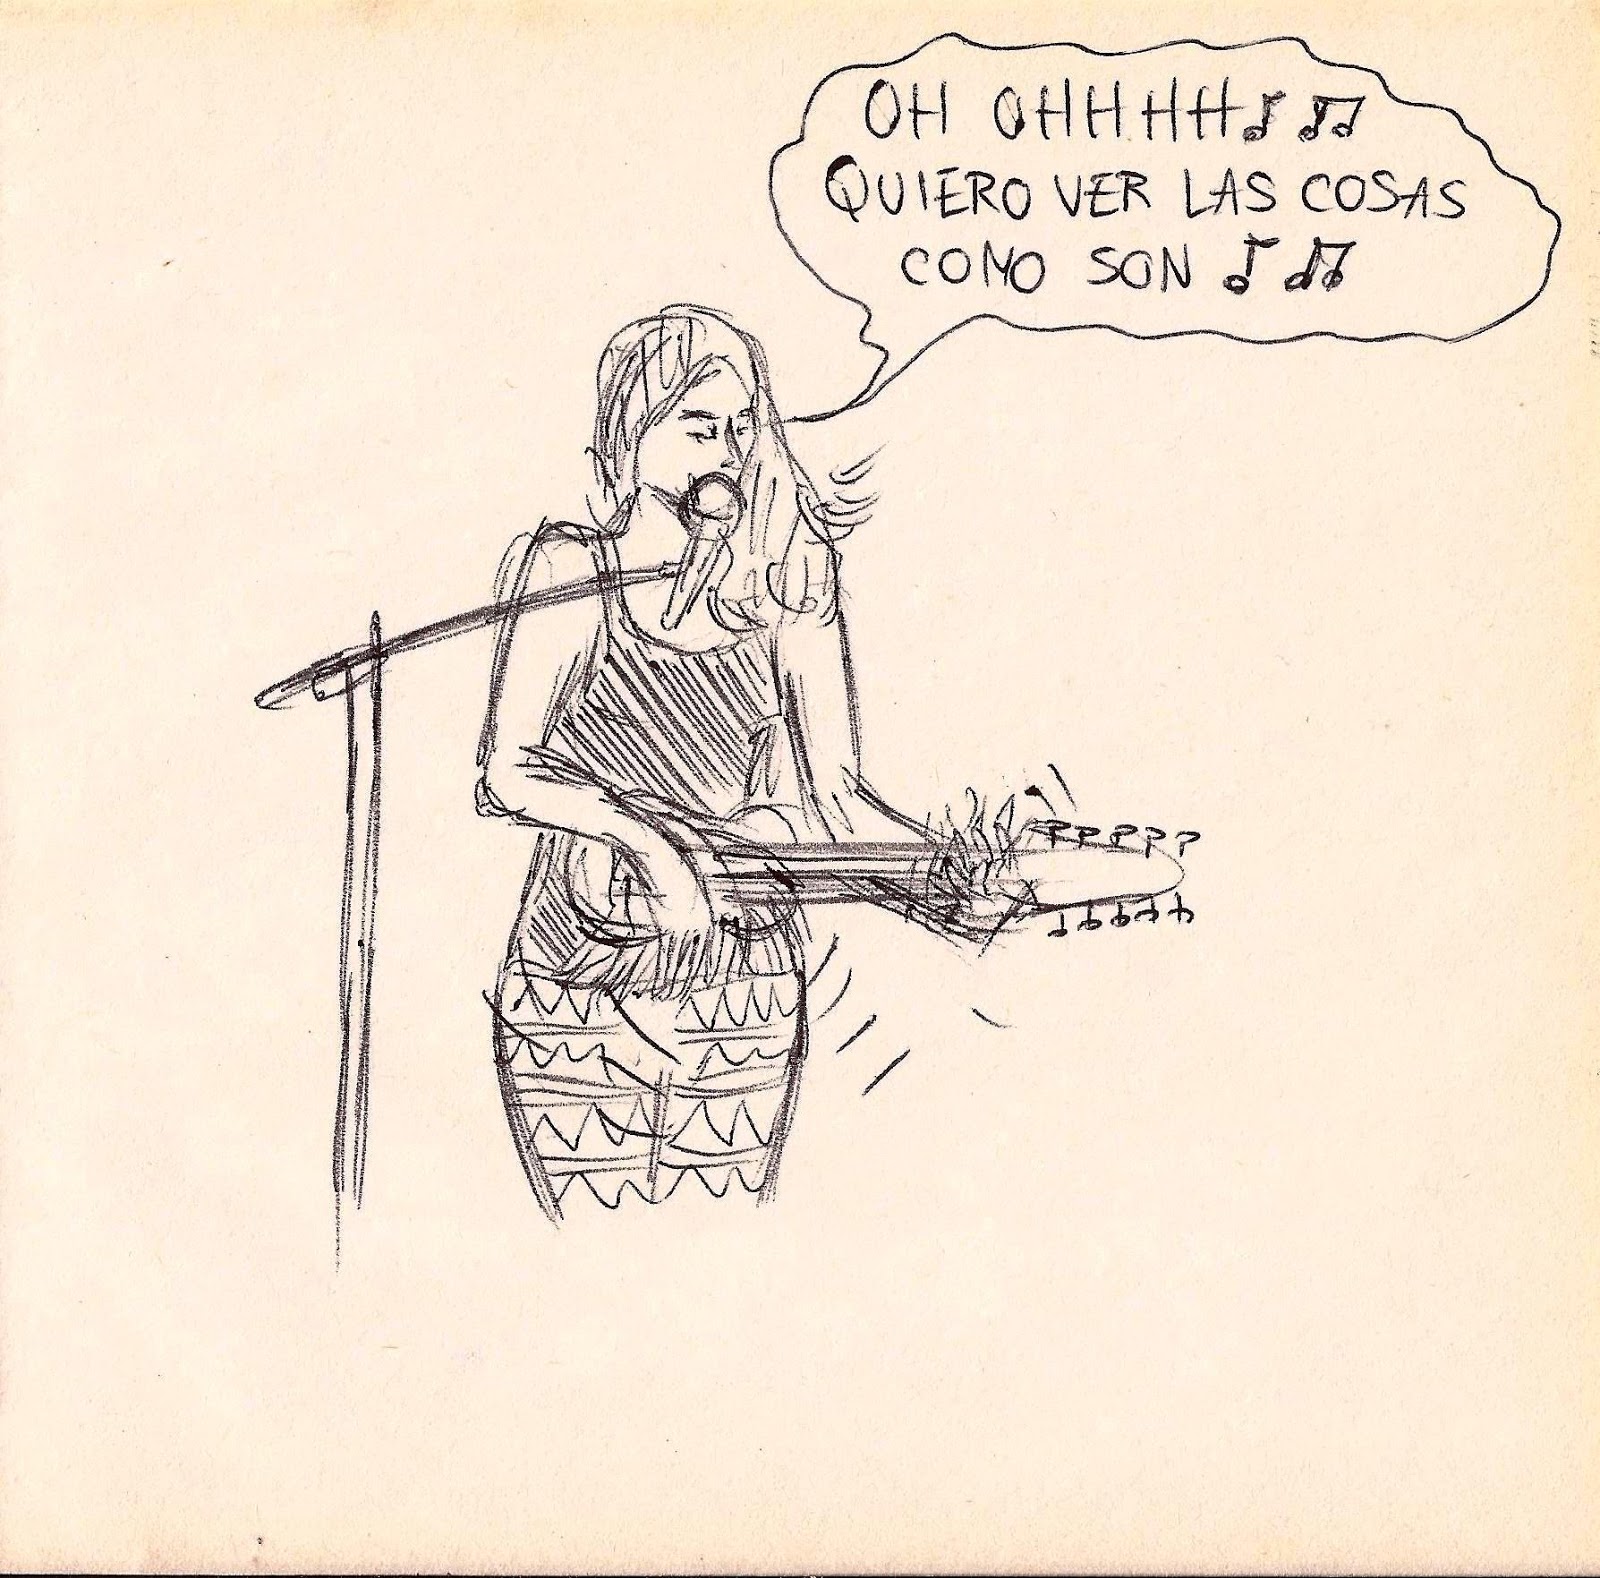 OH OHHHH
QUIERO VER LAS COSAS
COMO SON